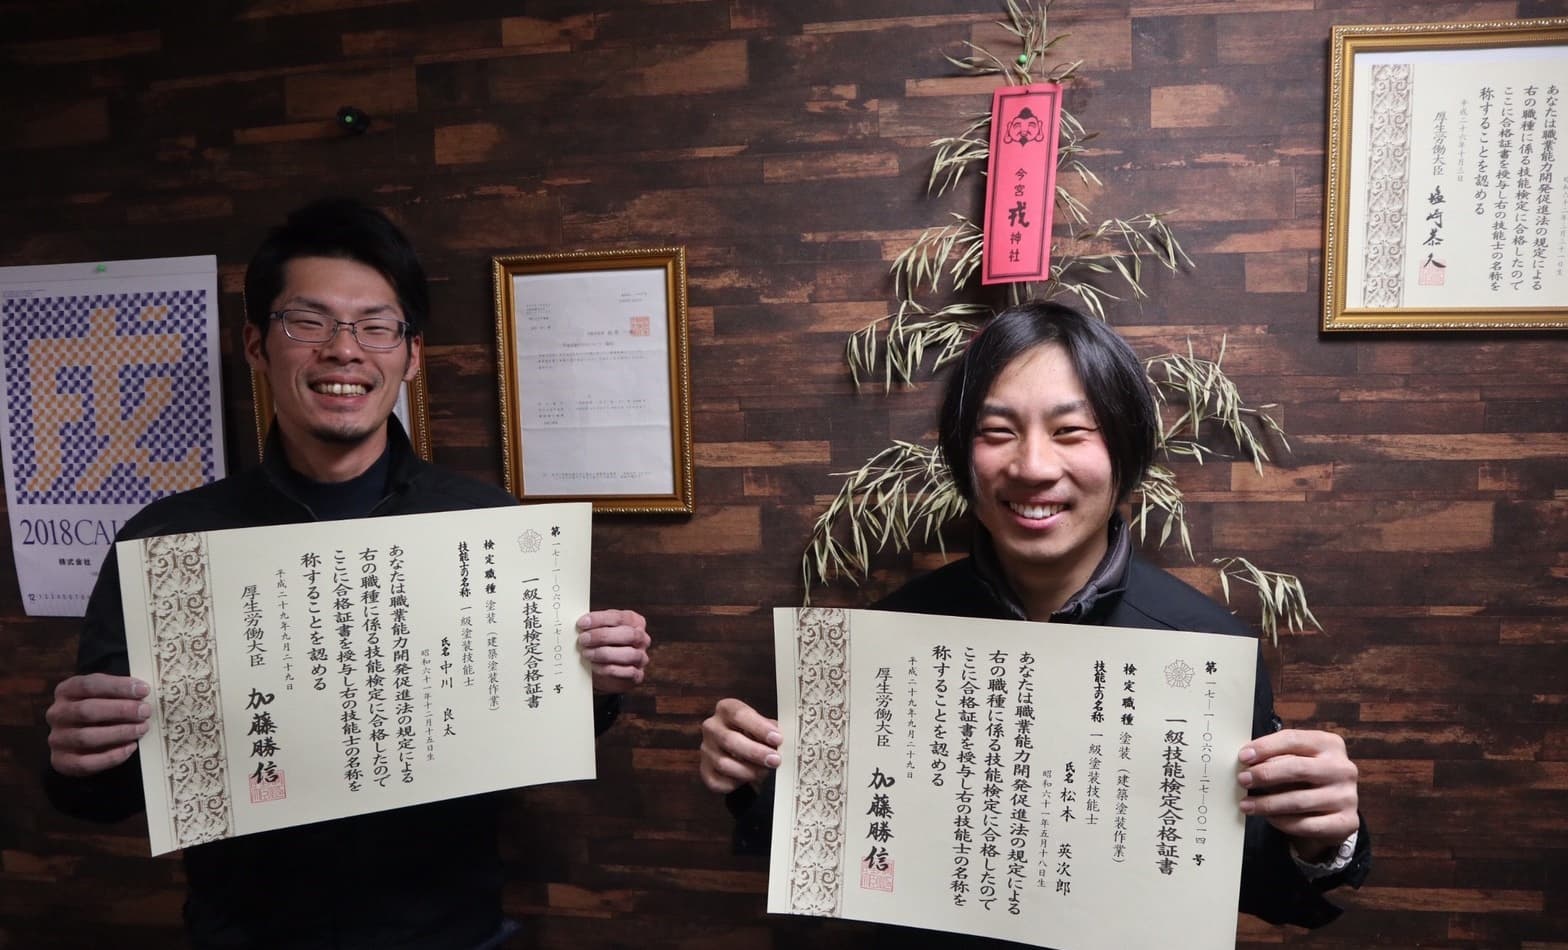 第一七-一-〇六〇-二七-〇〇一一号
一級技能検定合格証書
検定職種 塗装(建築塗装作業)
技能士の名称 一級塗装技能士
氏名 中川 良太
昭和六十一年十二月十五日生
あなたは職業能力開発促進法の規定による
右の職種に係る技能検定に合格したので
ここに合格証書を授与し右の技能士の名称を
称することを認める
平成二十九年九月二十九日
厚生労働大臣 加藤勝信
第一七-一-〇六〇-二七-〇〇一四号
一級技能検定合格証書
検定職種 塗装(建築塗装作業)
技能士の名称 一級塗装技能士
氏名 松本 英次郎
昭和六十一年五月十八日生
あなたは職業能力開発促進法の規定による
右の職種に係る技能検定に合格したので
ここに合格証書を授与し右の技能士の名称を
称することを認める
平成二十九年九月二十九日
厚生労働大臣 加藤勝信
今宮戎神社
あなたは職業能力開発促進法の規定による
右の職種に係る技能検定に合格したので
ここに合格証書を授与し右の技能士の名称を
称することを認める
平成二十六年十月三日
厚生労働大臣 塩崎恭久
2018CAL
株式会社